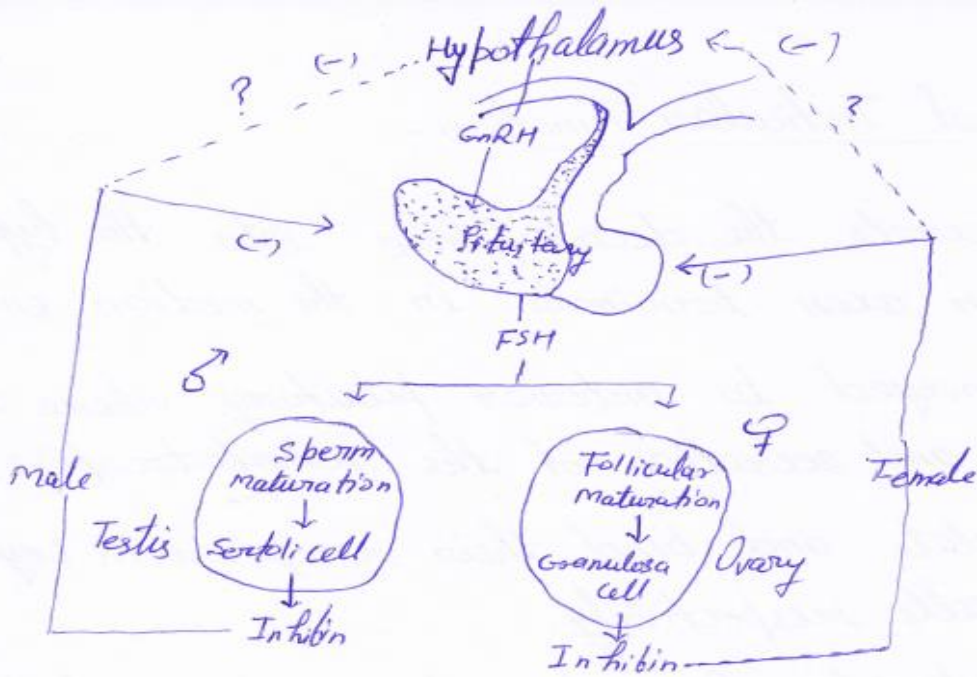 Hypothalamus
(-)
(-)
?
?
GnRH
(-)
Pituitary
(-)
FSH
♂
♀
Male
Female
Testis
Sperm
maturation
Sertoli cell
Inhibin
Follicular
maturation
Granulosa
cell
Ovary
Inhibin